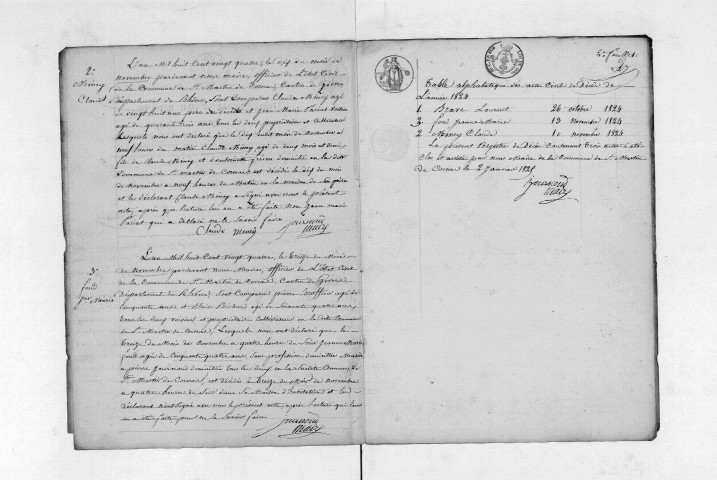 2e
Meury
Claude
L'an Mil huit Cent vingt quatre, le dix du mois de
Novembre pardevant nous maire, officier de L'état Civil
de la Commune de St Martin de Cornas, Canton de Givors
Département du Rhône, Sont Comparus Claude Meury agé
de vingt huit ans père du décédé et Jean Marie
agé de quarante trois ans tous les deux propriétaires et Cultivateurs
Lesquels nous ont déclaré que le dix dudit mois de Novembre a
neuf heures du matin Claude Meury agé de deux mois et demi
fils de Claude Meury et d'antoinette domicilié en la dite
Commune de St martin de Cornas est décédé le dix du mois
de Novembre a neuf heures du Matin en la maison de son père
et le déclarant Claude Meury a Signé avec nous le présent
acte, après que lecture leur en a été faite Non Jean marie
que a déclaré ne le Savoir faire
Claude meury Journoud
Maire
3e
fond
Jne Marie
L'an Mil huit Cent vingt quatre, le treize du Mois
de Novembre pardevant nous Maire, officier de L'état Civil
de la Commune de St Martin de Cornas, Canton de Givors
Département du Rhône, Sont Comparus pierre agé de
Cinquante ans et agé de Soixante quatre ans,
tous les deux voisins et propriétaires cultivateurs en la dite Commune
de St Martin de Cornas, Lesquels nous ont déclaré que le
treize du Mois de Novembre a quatre heures du Soir Jeanne Marie
fond agé de Cinquante quatre ans Sans profession domiciliée Mariée
a pierre Journoud domiciliés tous les deux en la Susdite Commune de
St Martin de Cornas, est décédée le treize du Mois de Novembre
a quatre heures du Soir dans Sa Maison d'habitation et les
déclarants n'ont Signé avec nous le présent acte, après Lecture qui leur
en a été faite, pour ne le Savoir faire
Journoud
Maire
27
Table alphabétique des actes Civil de Décès de
L'année 1824
1. Brave Laurent 26 octobre 1824
3. fond jeanne Marie 13 novembre 1824
2. Meury Claude 10 novembre 1824
Le présent Registre de Décès Contenant trois actes a été
Clos et arrêté par nous Maire de la Commune de St Martin
de Cornas le 2 Janvier 1825
Journoud
Maire